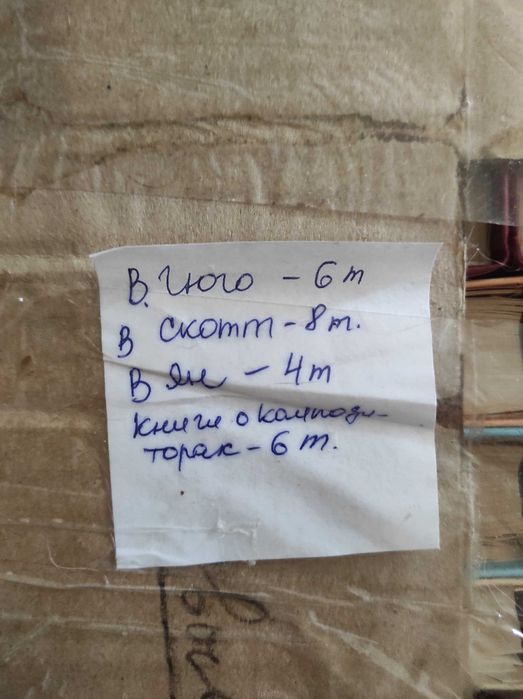 В. Гюго - 6 т
В Скотт - 8 т.
В Ян - 4 т
Книги о компози-
торах - 6 т.